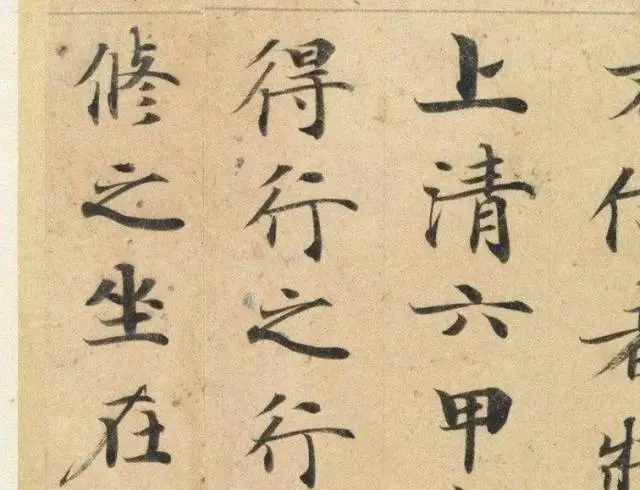 者
上清六甲
得行之行
修之坐在